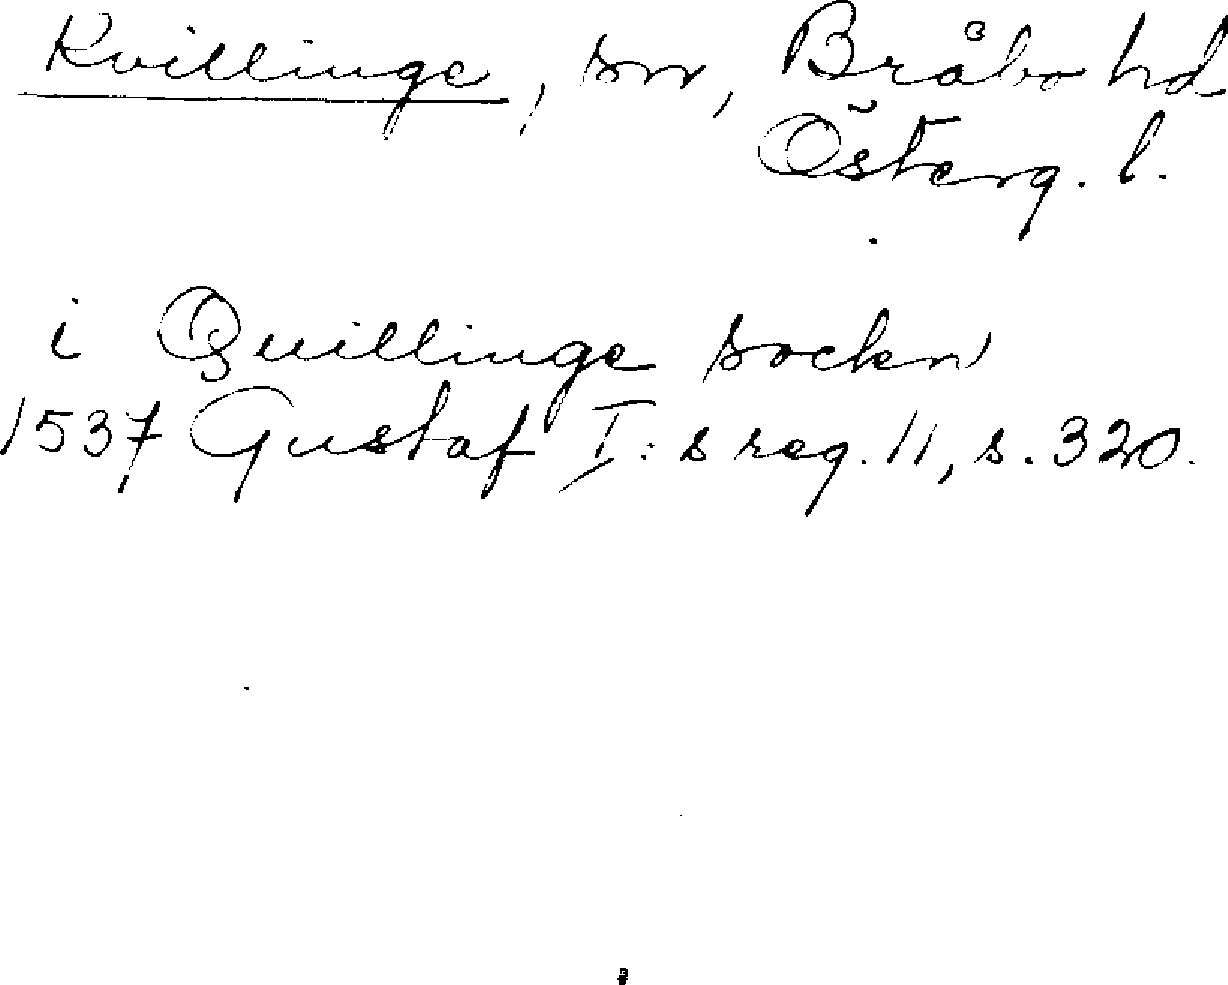 Kvillinge, sn, Bråbo hd
Österg. l.
i Quillinge sockn
1537 Gustaf I:s reg. 11, s. 320.